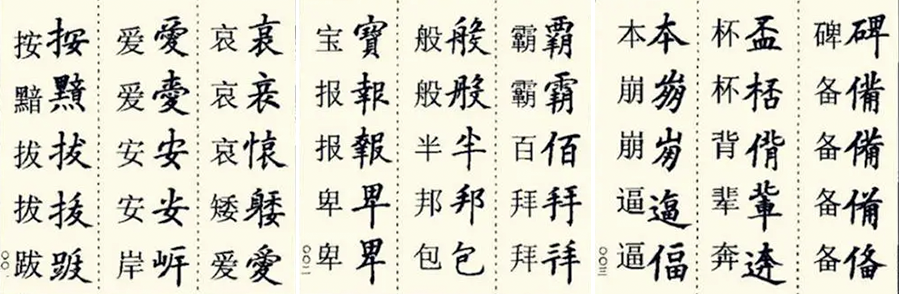 哀哀 哀哀 哀 矮躷 爱愛
爱愛 爱 安安 安安 岸屽
按按 黯 拔拔 拔拔 跋跋
〇〇一
霸覇 霸霸 百佰 拜拜 拜拜
般般 般般 半半 邦邦 包包
宝寶 报報 报報 卑卑 卑卑
〇〇二
碑碑 备備 备備 备備 备俻
杯盃 杯 背偝 辈輩 奔逩
本本 崩崩 崩崩 逼逼 逼偪
〇〇三